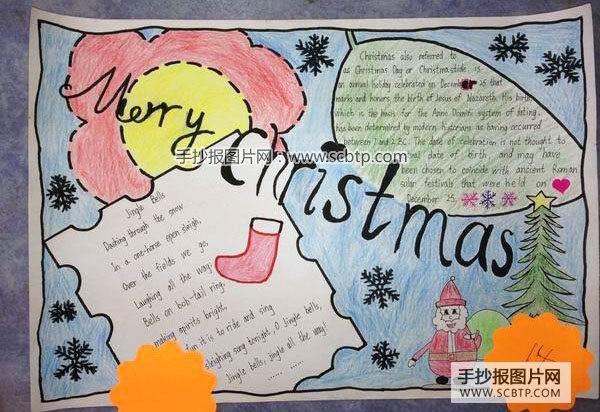 Merry
Christmas
Christmas also referred to
as Christmas Day or Christmastide, is
an annual holiday celebrated on December 25 that
marks and honors the birth of Jesus of Nazareth. His birth,
which is the basis for the Anno Domini system of dating,
has been determined by modern historians as having occurred
between 7 and 2 BC. The date of celebration is not thought to
actual date of birth, and may have
been chosen to coincide with ancient Roman
solar festivals that were held on
December 25.
手抄报图片网:www.scbtp.com
Jingle bells
Dashing through the snow
In a one-horse open sleigh,
Over the fields we go,
Laughing all the way;
Bells on bob-tail ring,
making spirits bright,
fun it is to ride and sing
sleighing song tonight, O Jingle bells,
Jingle bells, jingle all the way!
......
14
手抄报图片网
WWW.SCBTP.COM